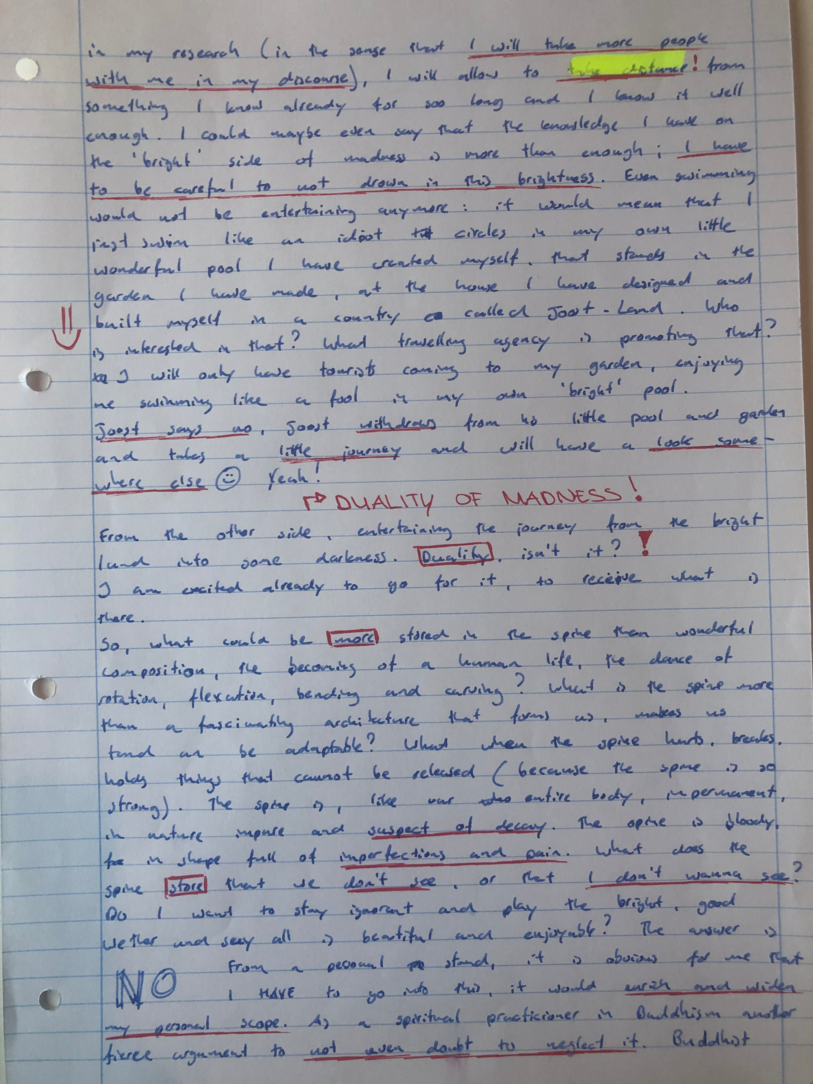 in my research (in the sense that I will take more people
with me in my discourse), I will allow to take distance! from
something I know already for soo long and I know it well
enough. I could maybe even say that the knowledge I have on
the 'bright' side of madness is more than enough; I have
to be careful to not drown in this brightness. Even swimming
would not be entertaining anymore: it would mean that I
just swim like an idiot circles in my own little
wonderful pool I have created myself, that stands in the
garden I have made, at the house I have designed and
built myself in a country called Joost-Land. Who
is interested in that? What travelling agency is promoting that?
I will only have tourists coming to my garden, enjoying
me swimming like a fool in my own 'bright' pool.
Joost says no, Joost withdraws from his little pool and garden
and takes a little journey and will have a look some-
where else ☺ Yeah!
↱ DUALITY OF MADNESS!
From the other side, entertaining the journey from the bright
land into some darkness. Duality, isn't it? !
I am excited already to go for it, to receive what is
there.
So, what could be more stored in the spine than wonderful
composition, the becoming of a human life, the dance of
rotation, flexution, bending and curving? What is the spine more
than a fascinating architecture that forms us, makes us
and be adaptable? What when the spine hurts, breakes,
holds things that cannot be released (because the spine is so
strong). The spine is, like our entire body, impermanent,
in nature impure and suspect of decay. The spine is bloody,
in shape full of imperfections and pain. What does the
spine store that we don't see, or that I don't wanna see?
Do I want to stay ignorant and play the bright, good
wether and say all is beautiful and enjoyable? The answer is
NO From a personal stand, it is obvious for me that
I HAVE to go into this, it would enrich and widen
my personal scope. As a spiritual practicioner in Buddhism another
fierce argument to not even doubt to neglect it. Buddhist